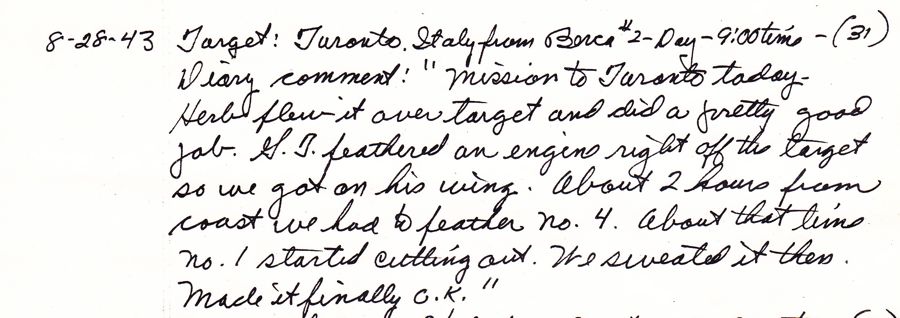 8-28-43 Target: Taranto, Italy from Berca #2-Day-9:00 time - (31)
Diary comment: "Mission to Taranto today-
Herb flew it over target and did a pretty good
job. G.I. feathered an engine right off the target
so we got on his wing. About 2 hours from
coast we had to feather no. 4. About that time
no. 1 started cutting out. We sweated it then.
Made it finally O.K."